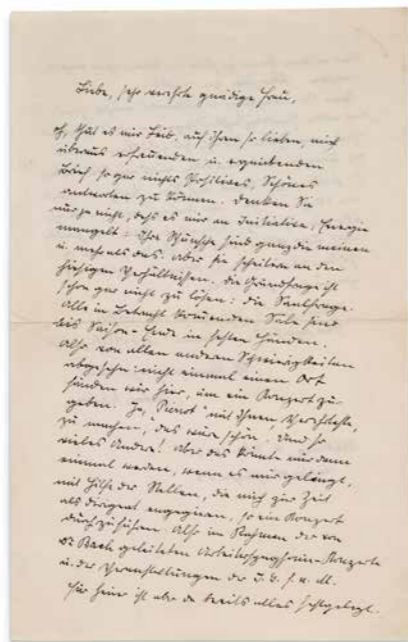 Liebe, sehr verehrte gnädige Frau,
es thut es mir Leid, auf Ihren so lieben, mich
überaus erfreuenden u. ergreifenden
Brief so gar nichts Positives, Schönes
antworten zu können. Denken Sie
nur ja nicht, daß es mir an Initiative, Energie
mangelt: Ihre Wünsche sind ganz die meinen
u. mehr als das. Aber sie scheitern an den
hiesigen Verhältnissen. Die Grundfrage ist
schon gar nicht zu lösen: die Saalfrage.
Alle in Betracht kommenden Säle sind
bis Saison-Ende in festen Händen.
Also von allen andern Schwierigkeiten
abgesehn: nicht einmal einen Ort
fänden wir hier, um ein Konzert zu
geben. Ja, "Pierrot" mit Ihnen, Verehrteste,
zu machen, das wäre schön. Und so
vieles Andere! Aber das könnte nur dann
einmal werden, wenn es mir gelingt,
mit Hilfe der Stellen, die mich zur Zeit
als Dirigent engagieren, so ein Konzert
durchzuführen. Also im Rahmen der von
Dr Bach geleiteten Arbeitersymphonie-Konzerte
u. der Veranstaltungen der I. G. f. n. M.
für heuer ist aber da bereits alles festgelegt.